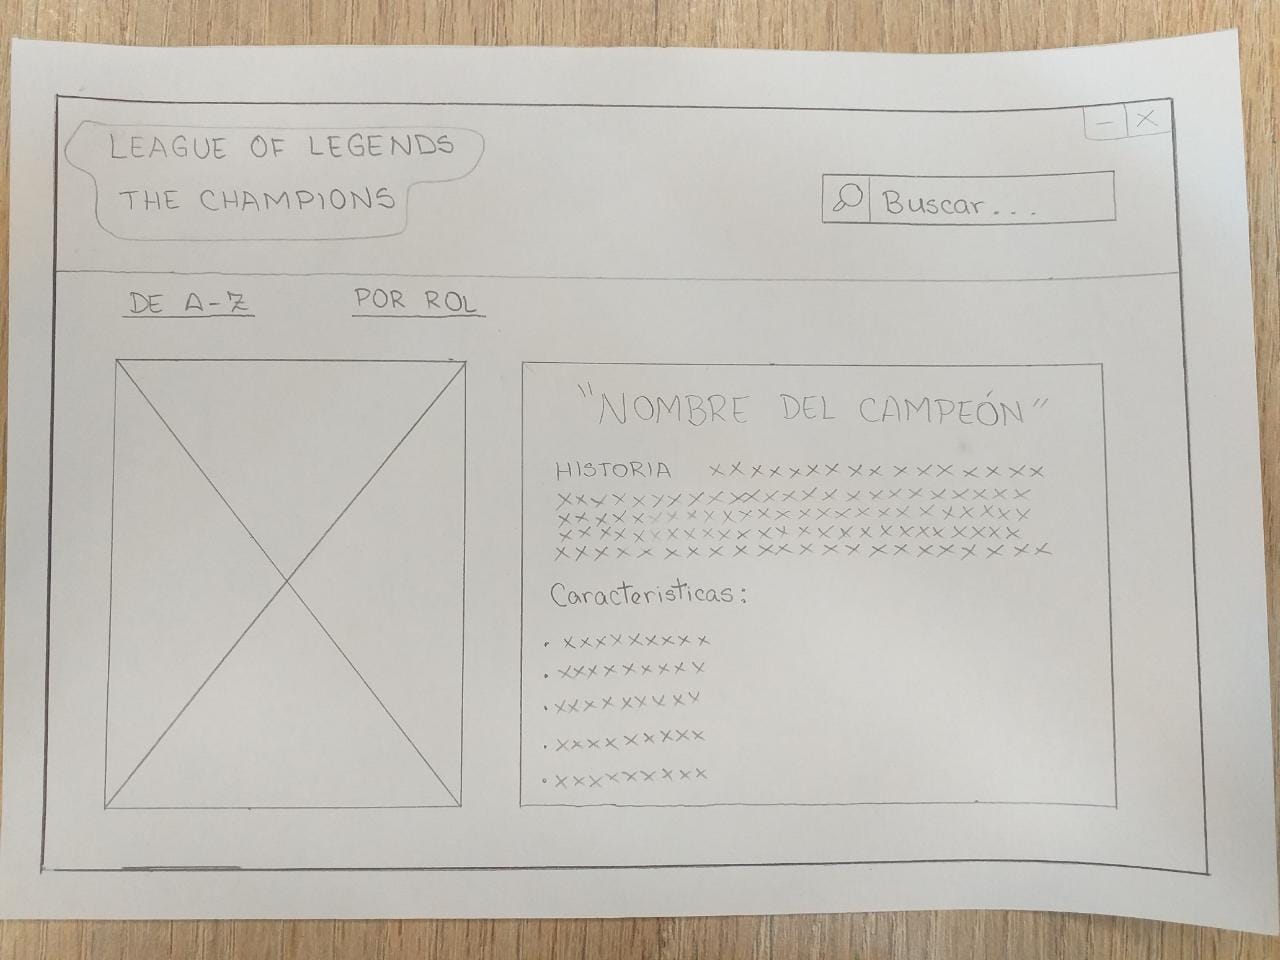 LEAGUE OF LEGENDS
THE CHAMPIONS
- X
Buscar...
DE A-Z
POR ROL
"NOMBRE DEL CAMPEÓN"
HISTORIA xxxxxxxxxxxxxxxx
xxxxxxxxxxxxxxxxxxxxxxxx
xxxxxxxxxxxxxxxxxxxxxxxx
xxxxxxxxxxxxxxxxxxxxxxxx
xxxxxxxxxxxxxxxxxxxxxxx
Caracteristicas:
• xxxxxxxxx
• xxxxxxxxx
• xxxxxxxxx
• xxxxxxxxx
• xxxxxxxxx